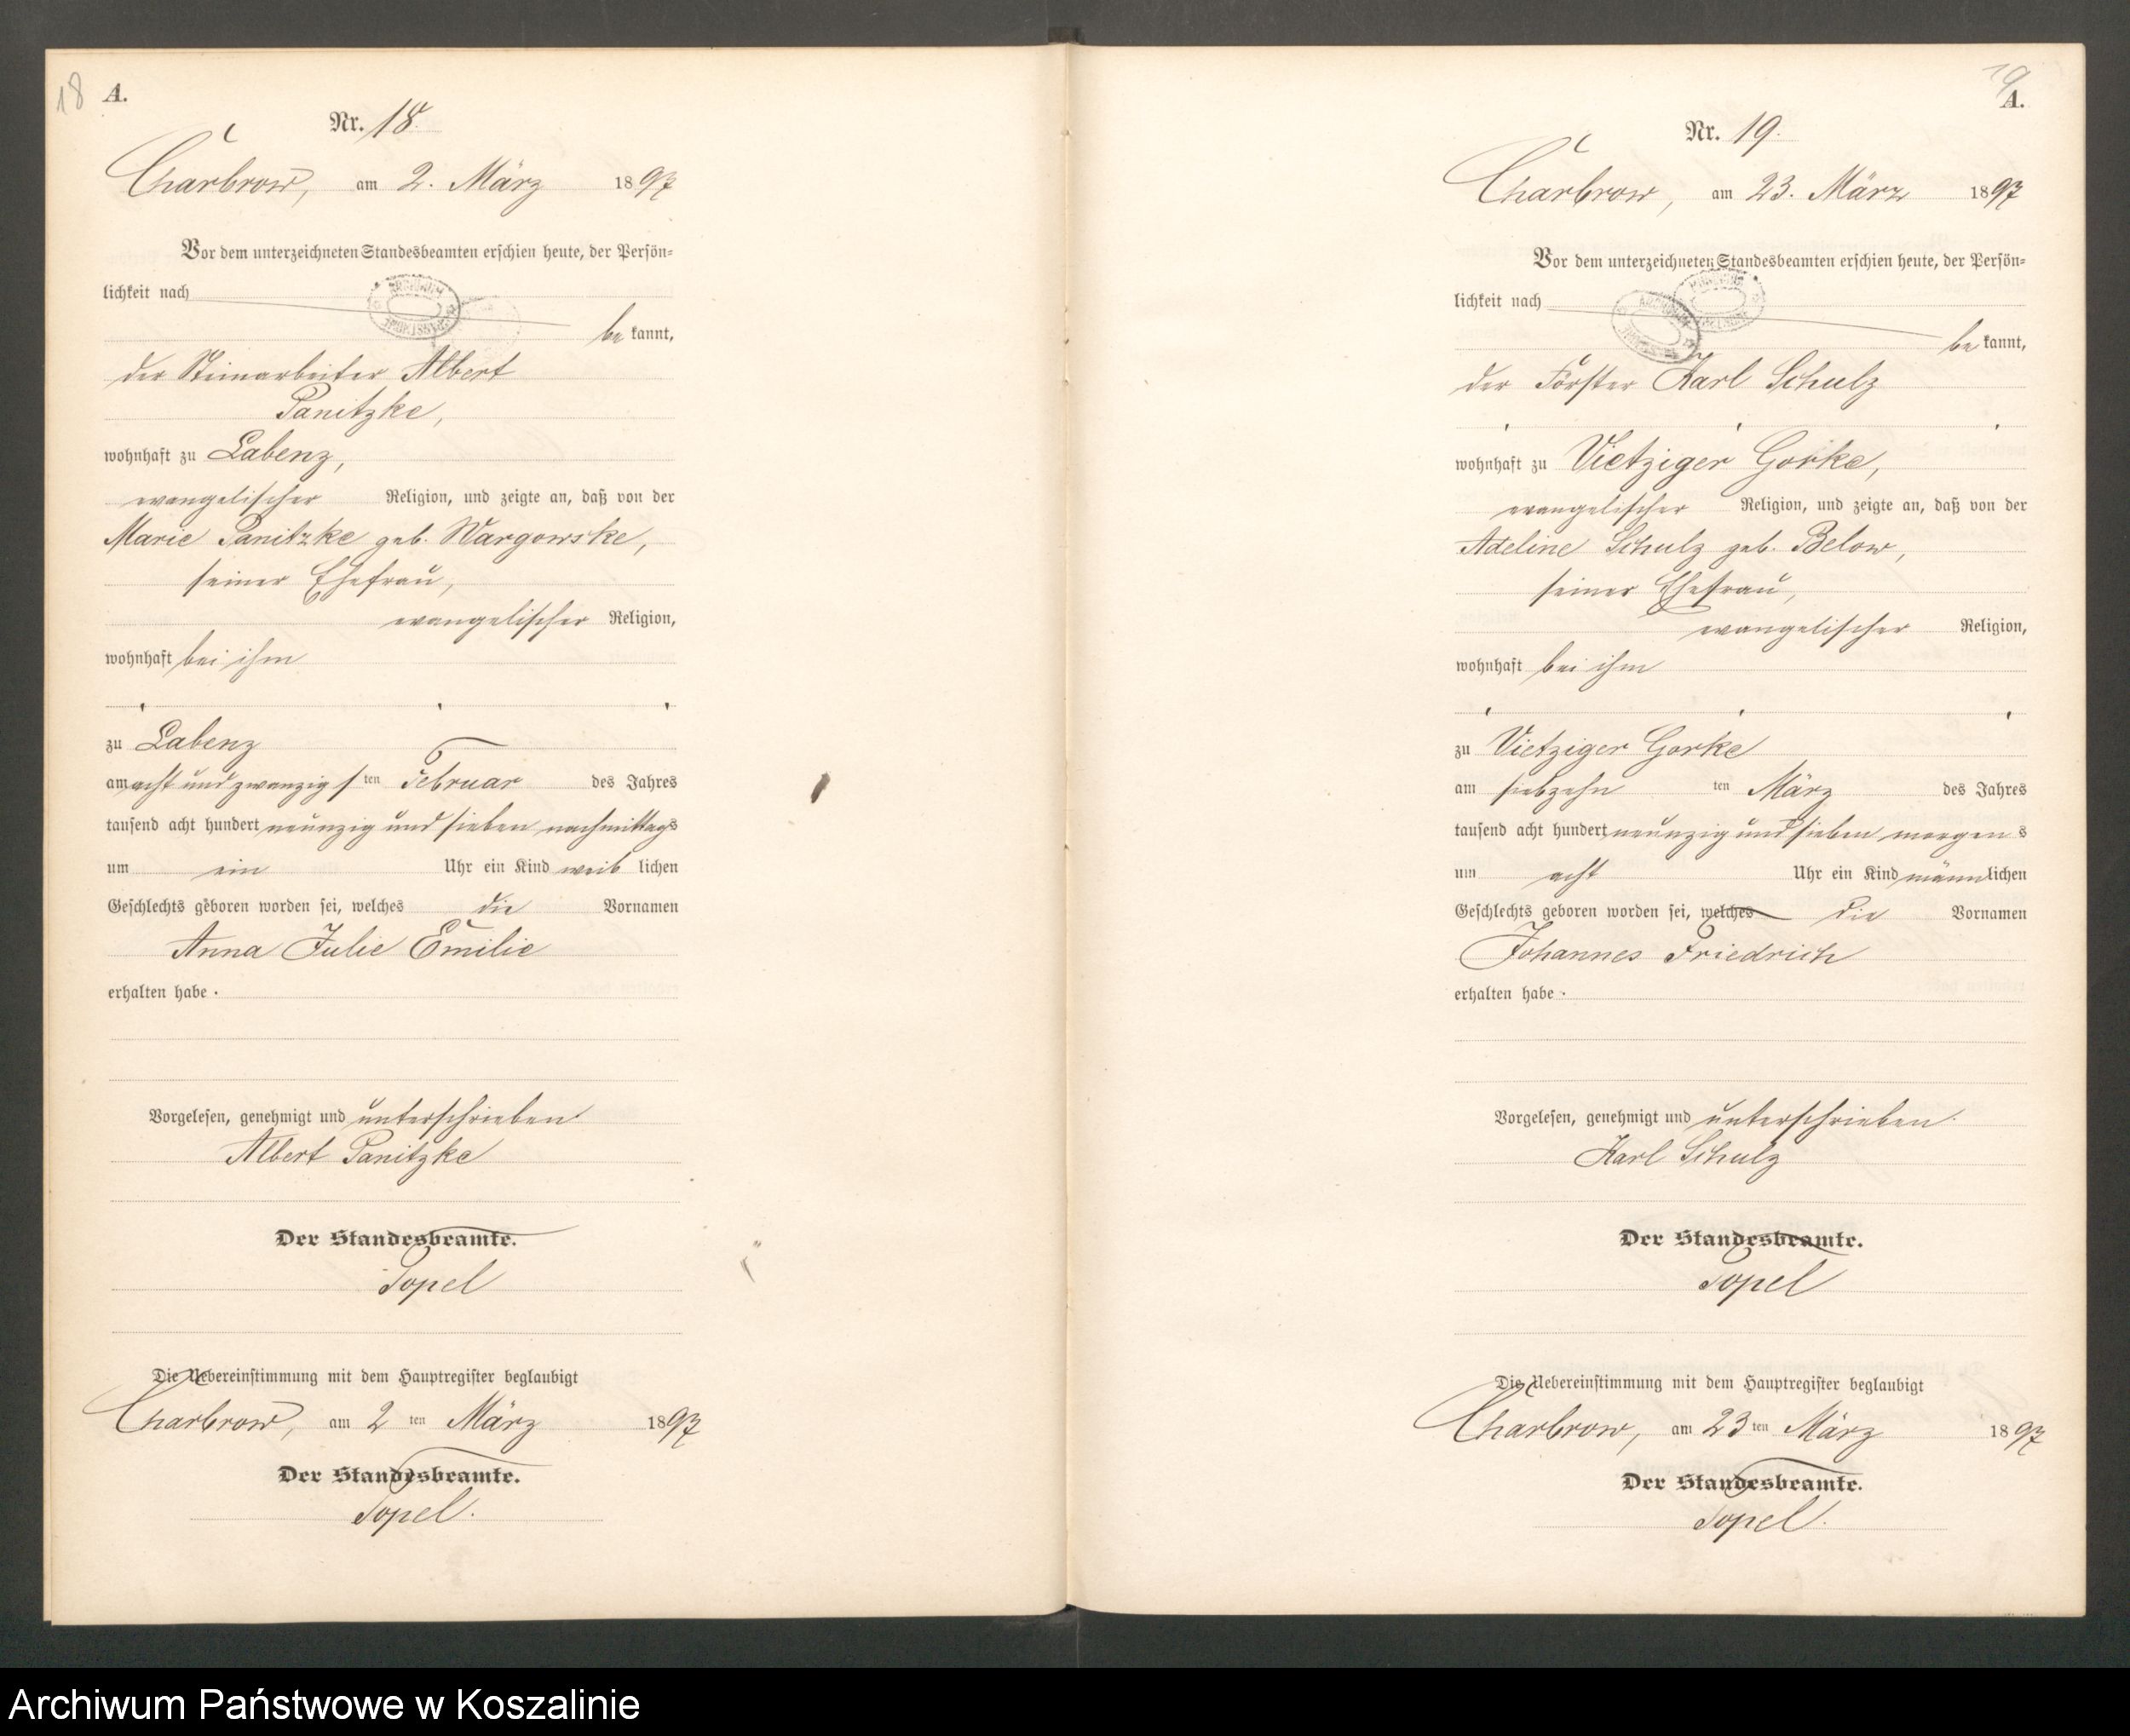 18
A.
Nr. 18.
Charbrow, am 2. März 1897
Vor dem unterzeichneten Standesbeamten erschien heute, der Persön-
lichkeit nach
be kannt,
der Steinarbeiter Albert
Panitzke,
wohnhaft zu Labenz,
evangelischer Religion, und zeigte an, daß von der
Marie Panitzke geb. Wargowske,
seiner Ehefrau,
evangelischer Religion,
wohnhaft bei ihm
zu Labenz
am acht und zwanzigs ten Februar des Jahres
tausend acht hundert neunzig und sieben nachmittags
um ein Uhr ein Kind weib lichen
Geschlechts geboren worden sei, welches die Vornamen
Anna Julie Emilie
erhalten habe.
Vorgelesen, genehmigt und unterschrieben
Albert Panitzke
Der Standesbeamte.
Topel
Die Uebereinstimmung mit dem Hauptregister beglaubigt
Charbrow, am 2 ten März 1897
Der Standesbeamte.
Topel.
19
A.
Nr. 19.
Charbrow, am 23. März 1897
Vor dem unterzeichneten Standesbeamten erschien heute, der Persön-
lichkeit nach
be kannt,
der Förster Karl Schulz
wohnhaft zu Vietziger Gorke,
evangelischer Religion, und zeigte an, daß von der
Adeline Schulz geb. Below,
seiner Ehefrau,
evangelischer Religion,
wohnhaft bei ihm
zu Vietziger Gorke
am siebzehn ten März des Jahres
tausend acht hundert neunzig und sieben morgen s
um acht Uhr ein Kind männlichen
Geschlechts geboren worden sei, welches die Vornamen
Johannes Friedrich
erhalten habe.
Vorgelesen, genehmigt und unterschrieben.
Karl Schulz
Der Standesbeamte.
Topel
Die Uebereinstimmung mit dem Hauptregister beglaubigt
Charbrow, am 23 ten März 1897
Der Standesbeamte.
Topel.
Archiwum Państwowe w Koszalinie